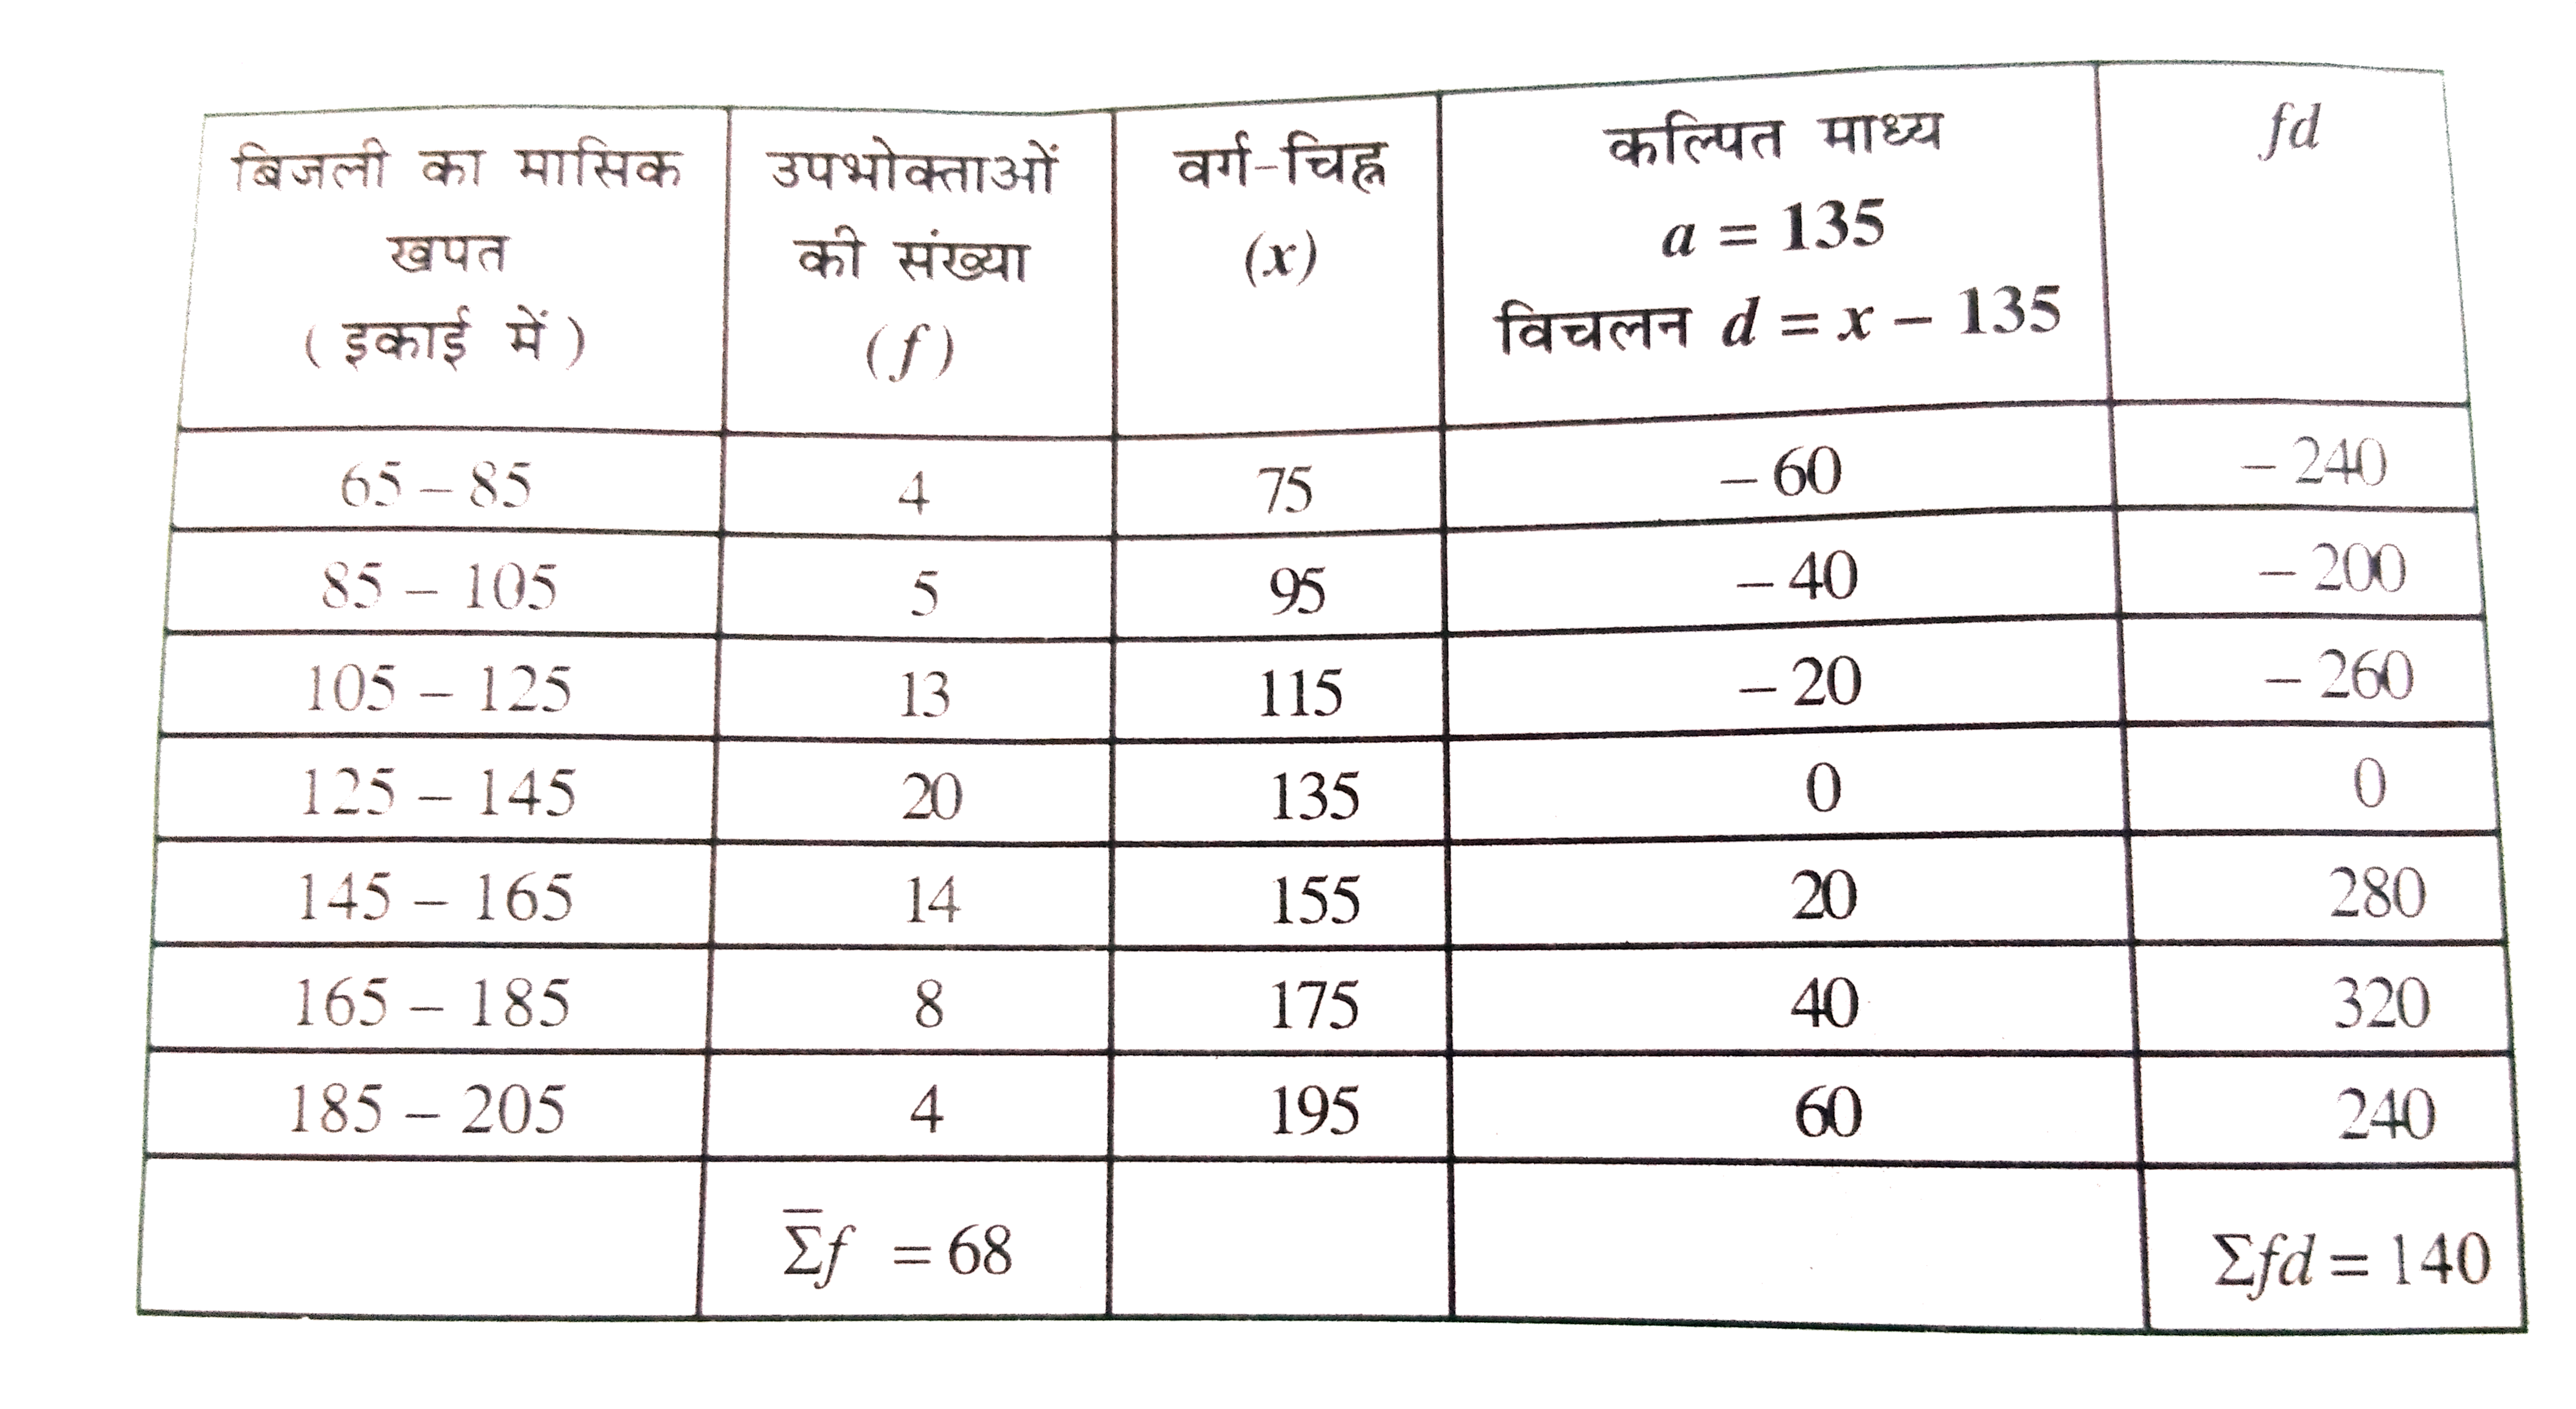 बिजली का मासिक खपत (इकाई में) | उपभोक्ताओं की संख्या (f) | वर्ग-चिह्न (x) | कल्पित माध्य a = 135 विचलन d = x – 135 | fd
65 – 85 | 4 | 75 | – 60 | – 240
85 – 105 | 5 | 95 | – 40 | – 200
105 – 125 | 13 | 115 | – 20 | – 260
125 – 145 | 20 | 135 | 0 | 0
145 – 165 | 14 | 155 | 20 | 280
165 – 185 | 8 | 175 | 40 | 320
185 – 205 | 4 | 195 | 60 | 240
Σf = 68 | Σfd = 140